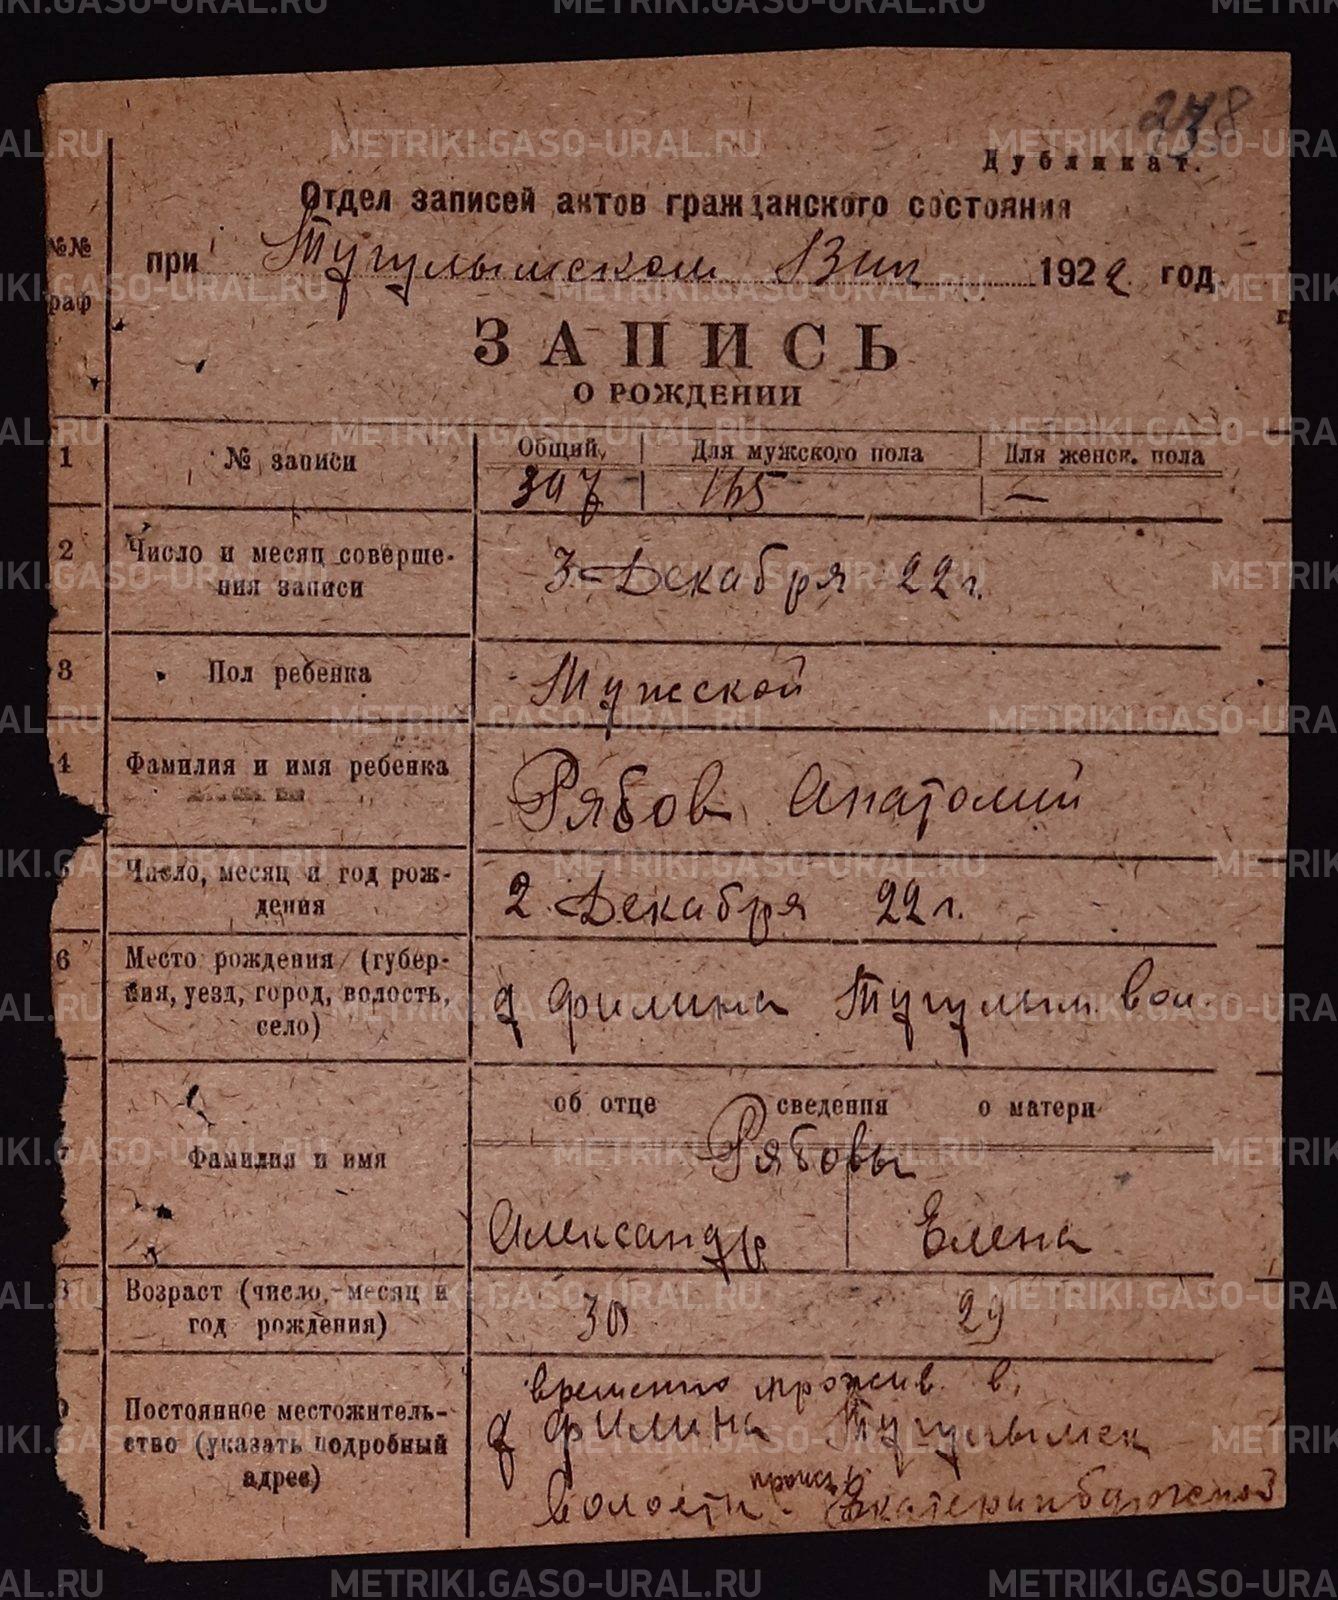 278
Дубликат.
Отдел записей актов гражданского состояния
№№ граф
при Тугулымском Вик 1922 год.
ЗАПИСЬ
О РОЖДЕНИИ
1 № записи Общий, Для мужского пола Для женск. пола
397 165 —
2 Число и месяц соверше-
ния записи
3 Декабря 22 г.
3 Пол ребенка Мужской
4 Фамилия и имя ребенка Рябов Анатолий
5 Число, месяц и год рож-
дения
2 Декабря 22 г.
6 Место рождения (губер-
ния, уезд, город, волость,
село)
д Филина Тугулым. вол.
об отце сведения о матери
7 Фамилия и имя Рябовы
Александр Елена
8 Возраст (число, месяц и
год рождения)
30 29
9 Постоянное местожитель-
ство (указать подробный
адрес)
временно прожив. в.
д Филина Тугулымск
волости. Екатеринбургской
METRIKI.GASO-URAL.RU